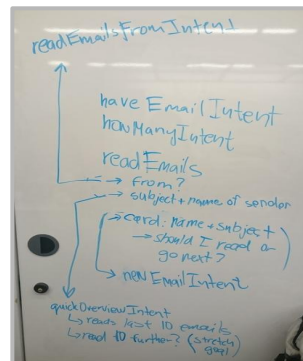 readEmailsFromIntent
have EmailIntent
howManyIntent
readEmails
→ from?
→ subject + name of sender
→ card: name + subject
→ should I read or
go next?
→ newEmailIntent
quickOverviewIntent
↳ reads last 10 emails
↳ read 10 further? (stretch
goal)